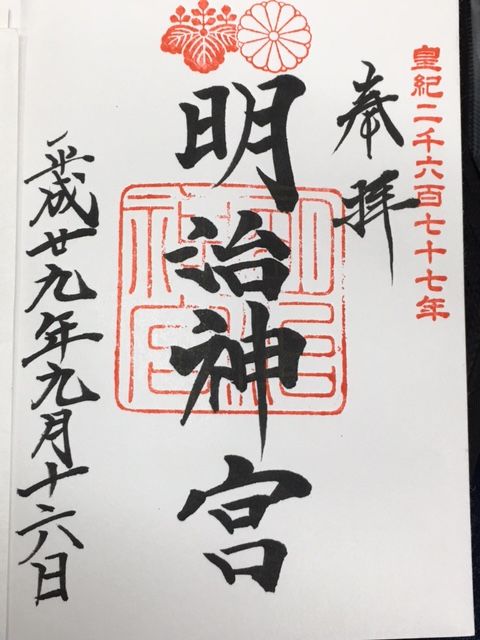 皇紀二千六百七十七年
奉拝
明治神宮
明治神宮
平成廿九年九月十六日